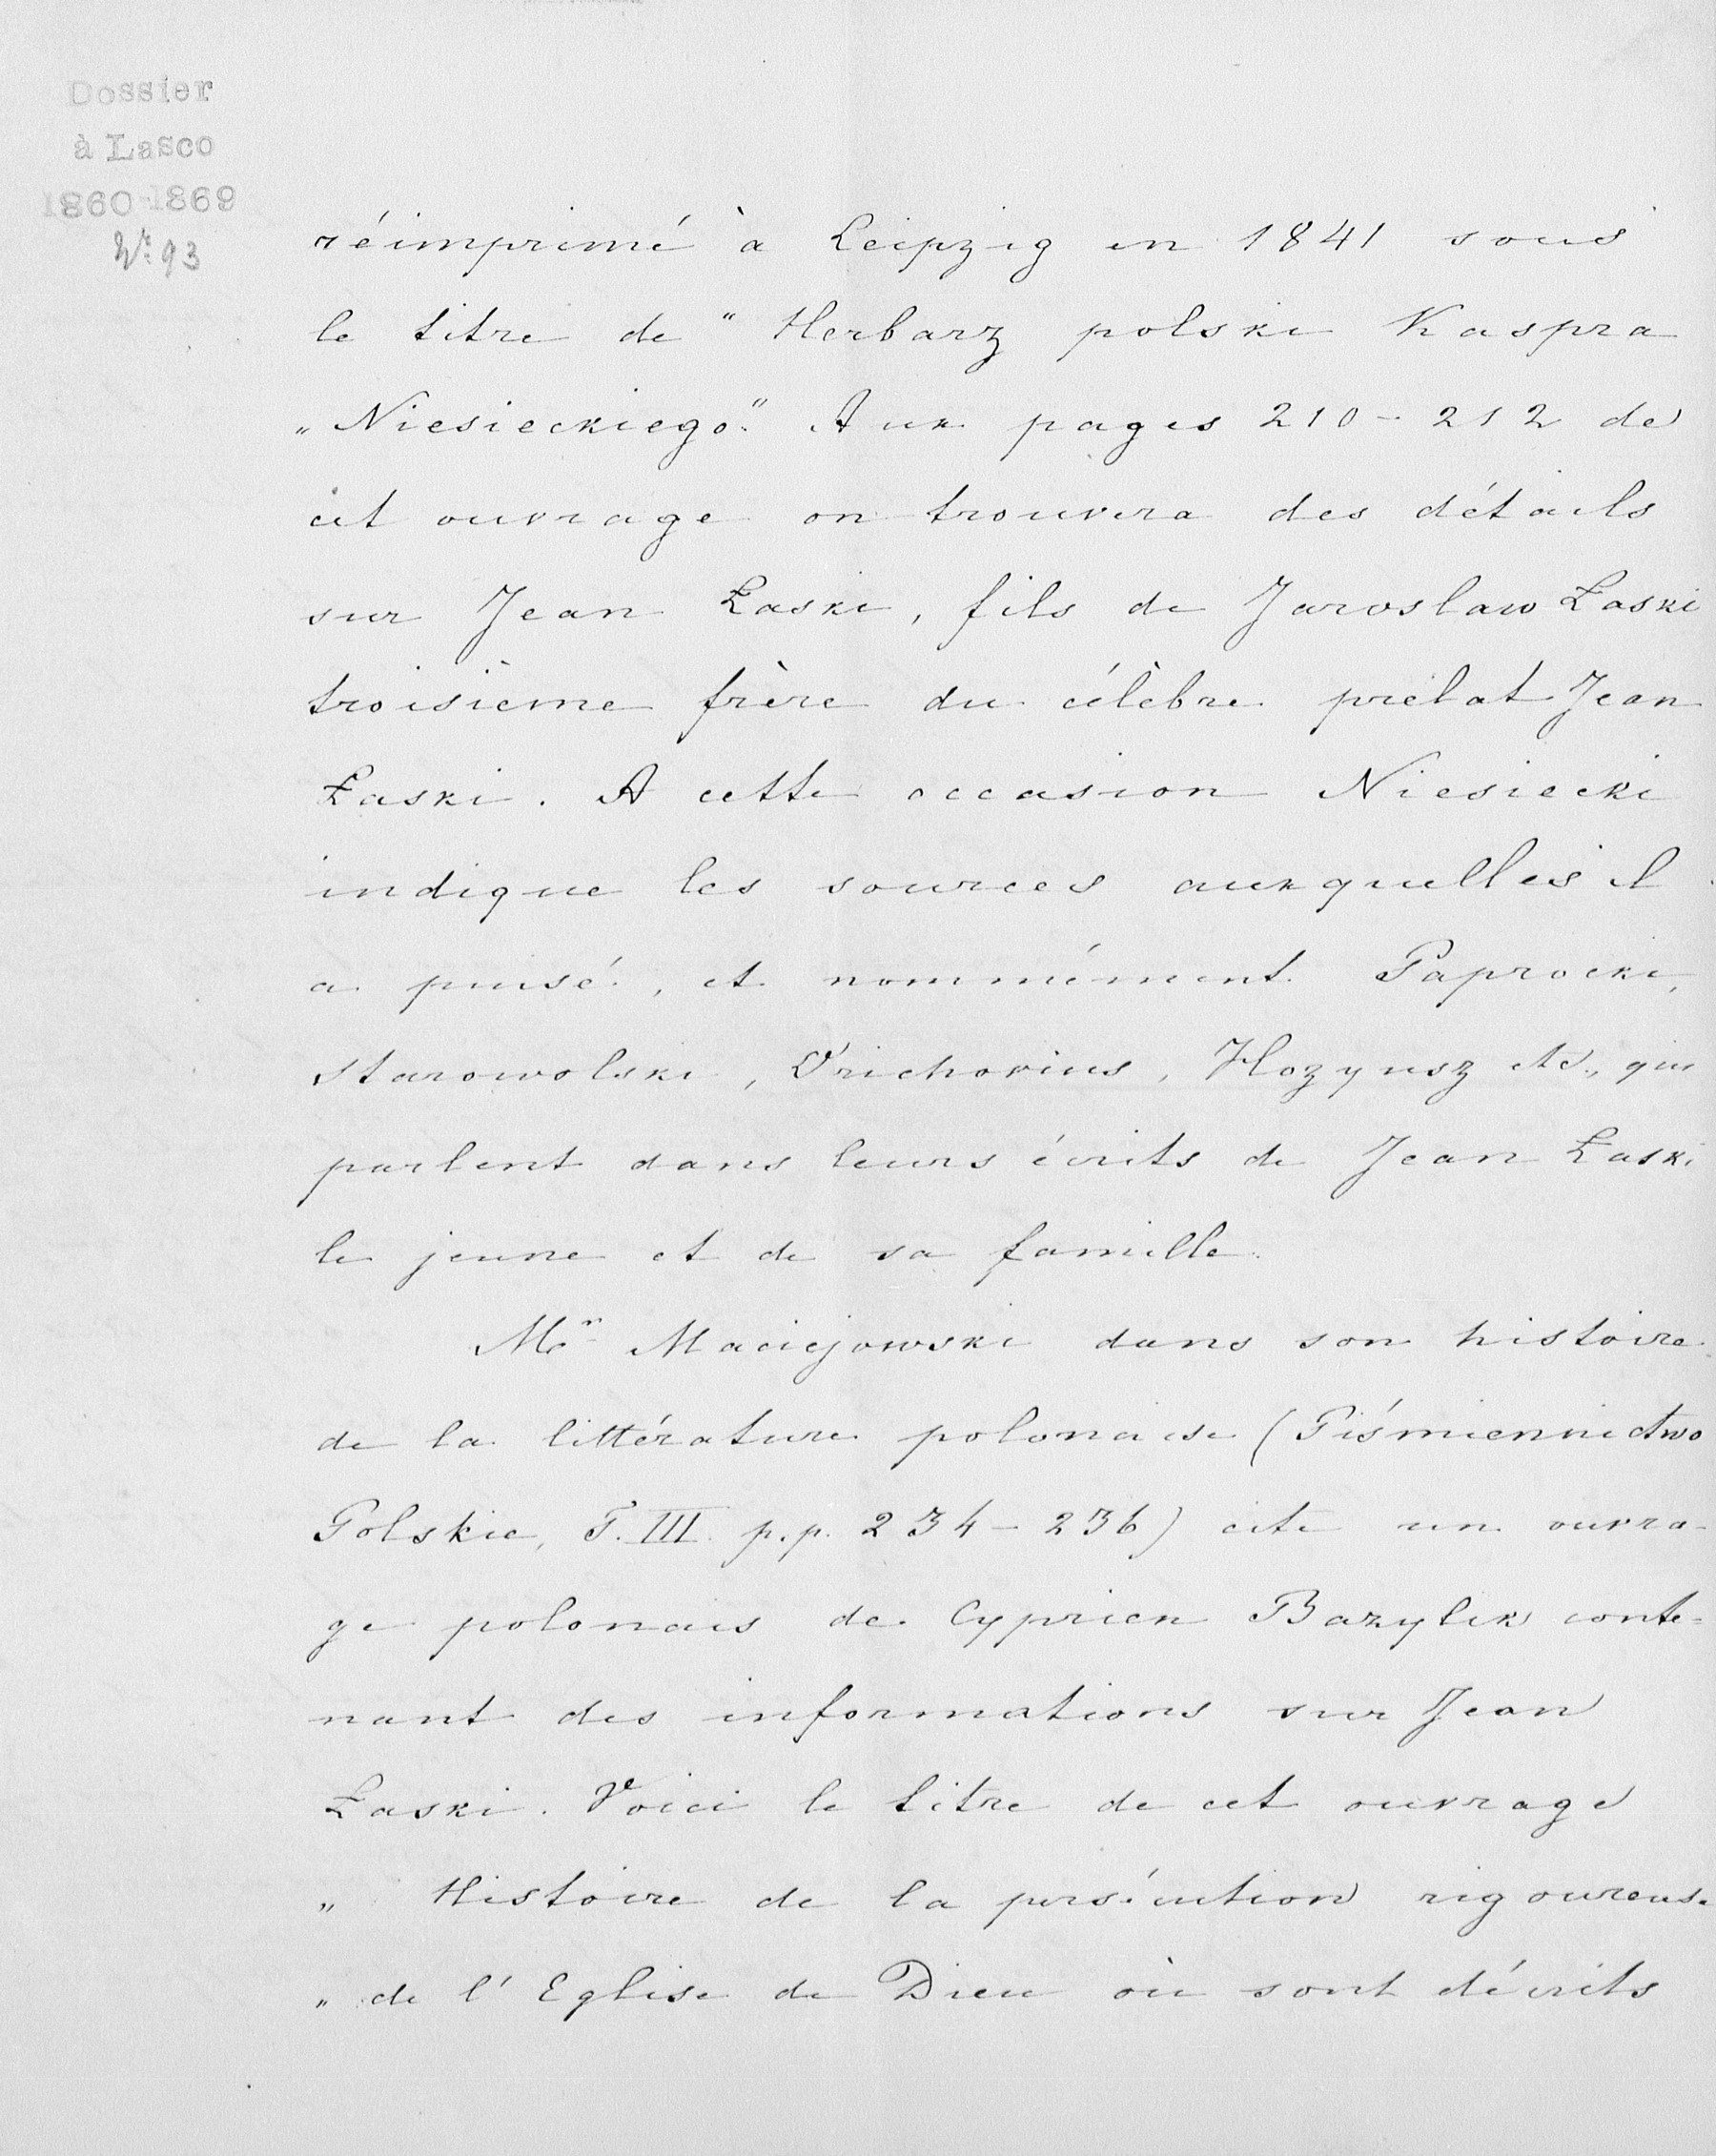 Dossier
à Lasco
1860-1869
Nº 93
réimprimé à Leipzig en 1841 sous
le titre de " Herbarz polski Kaspra
„ Niesieckiego." Aux pages 210-212 de
cet ouvrage on trouvera des détails
sur Jean Łaski, fils de Jaroslaw Łaski
troisième frère du célèbre prélat Jean
Łaski. A cette occasion Niesiecki
indique les sources auxquelles il
a puisé, et nommément Paprocki,
Starowolski, Orichovius, Hozyusz etc., qui
parlent dans leurs écrits de Jean Łaski
le jeune et de sa famille.
Mr Maciejowski dans son histoire
de la littérature polonaise (Piśmiennictwo
Polskie, T. III. p.p. 234-236) cite un ouvra-
ge polonais de Cyprien Bazylik conte-
nant des informations sur Jean
Łaski. Voici le titre de cet ouvrage
„ Histoire de la persécution rigoureuse
„ de l'Eglise de Dieu où sont décrits